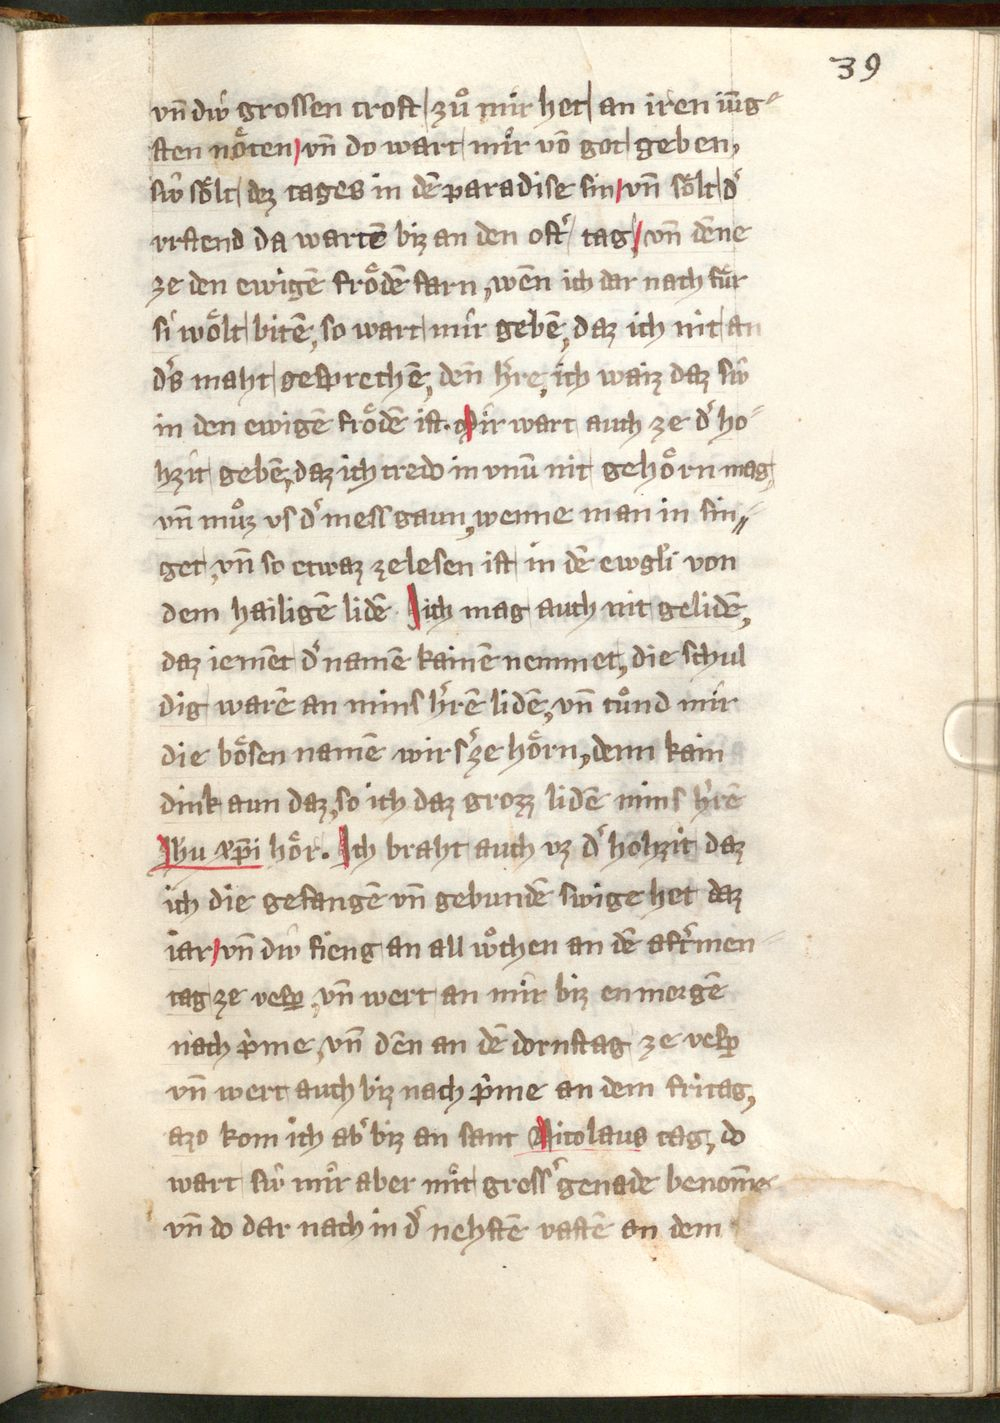 39
vn̄ diu̍ grossen trost zů mir het an iren iūg-
sten nöten vn̄ do wart mir vō got geben,
siu̍ sölt dez tages in dē paradise sin vn̄ sölt d'
vrstend da wartē biz an den ost' tag, vn̄ dēne
ze den ewigē frödē farn, wēn ich dar nach für
si wölt bitē, so wart mir gebē, daz ich nit an
d's maht gesprechē, deñ h're, ich waiz daz siu̍
in den ewigē frödē ist. Mir wart auch ze d' ho-
hzit gebē, daz ich credo in vnū nit gehörn mag,
vn̄ můz vs d' mess gaun, wenne man in sin-
get, vn̄ so etwaz ze lesen ist in dē ewgl'i von
dem hailigē lidē ich mag auch nit gelidē,
daz iemēt d' namē kainē nemmet, die schul
dig warē an mins h'rē lidē, vn̄ tůnd mir
die bösen namē wirs' ze hörn, denn kain
dink aun daz, so ich daz grozz lidē mins h'rē
Jhu xp̄i hör. Ich braht auch vz d' hohzit daz
ich die gefangē vn̄ gebundē swige het daz
iar vn̄ diu̍ fieng an all wͦchen an dē aft'men-
tag ze vesp̱, vn̄ wert an mir biz en morgē
nach p'me, vn̄ dēn an dē dornstag ze vesp̱
vn̄ wert auch biz nach p'me an dem fritag,
azo kom ich ab' biz an sant Nicolaus tag, do
wart siu̍ mir aber mit gross' genade benom̄e
vn̄ do dar nach in d' nehstē vastē an dem